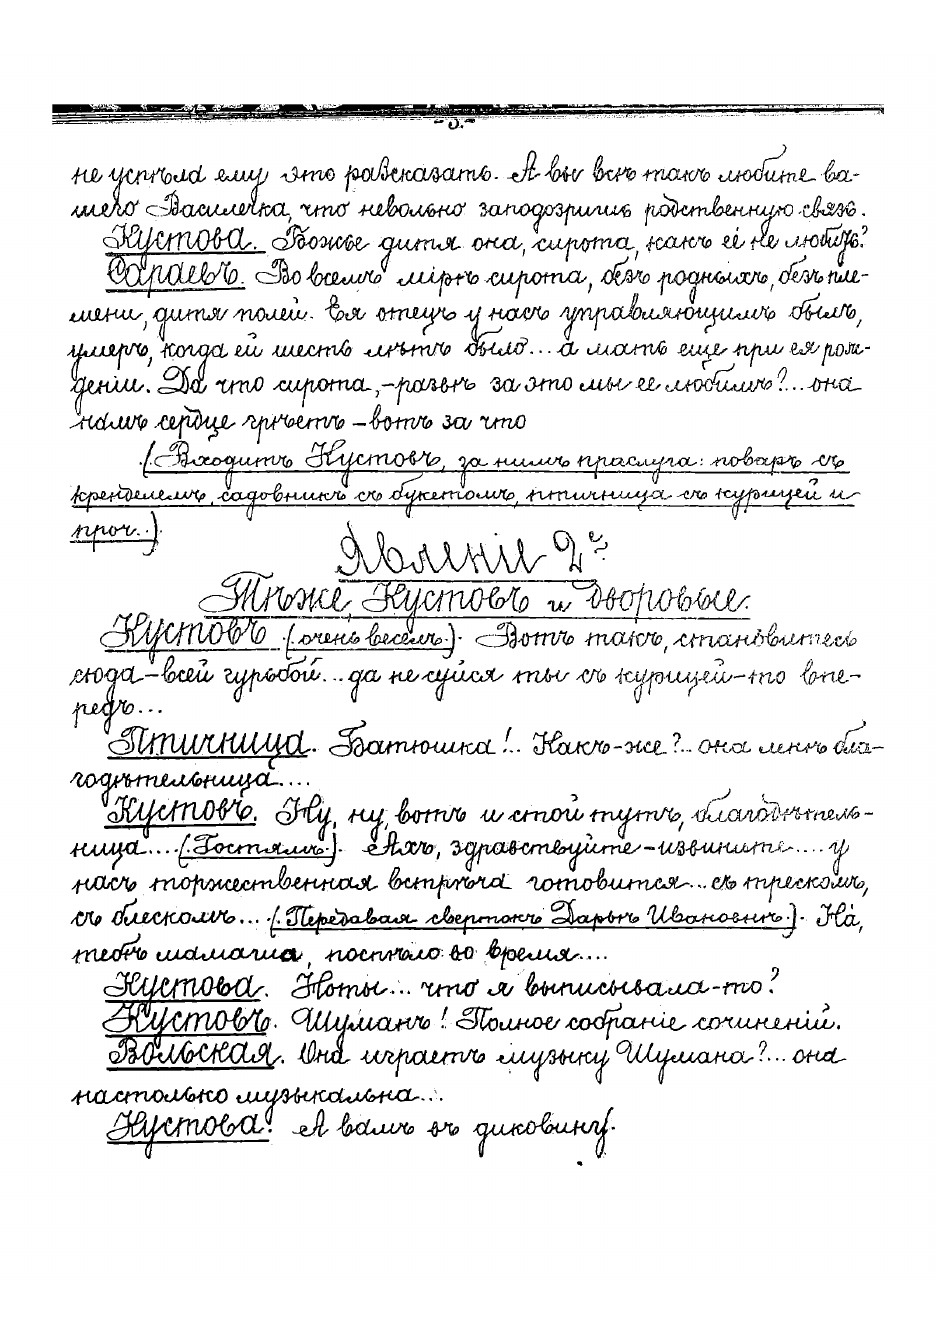 -5.-
не успѣла ему это разсказать. А вы всѣ такъ любите ва-
шего Василечка, что невольно заподозришь родственную связь.
Кустова. Божье дитя она, сирота, какъ её не любить?
Сараевъ. Во всемъ мірѣ сирота, безъ родныхъ, безъ пле-
мени, дитя полей. Ея отецъ у насъ управляющимъ былъ,
умеръ, когда ей шесть лѣтъ было... а мать еще при ея рож-
деніи. Да что сирота,-развѣ за это мы ее любимъ?... она
намъ сердце грѣетъ-вотъ за что
(Входитъ Кустовъ, за нимъ прислуга: поваръ съ
кренделемъ, садовникъ съ букетомъ, птичница съ курицей и
проч..)
Явленіе 2е.
Тѣ-же, Кустовъ и дворовые.
Кустовъ (очень веселъ.). Вотъ такъ, становитесь
сюда-всей гурьбой... да не суйся ты съ курицей-то впе-
редъ...
Птичница. Батюшка!.. Какъ-же?.. она мнѣ бла-
годѣтельница....
Кустовъ. Ну, ну, вотъ и стой тутъ, благодѣтель-
ница.... (Гостямъ.). Ахъ, здравствуйте-извините.... у
насъ торжественная встрѣча готовится... съ трескомъ,
съ блескомъ... (Передавая свертокъ Дарьѣ Ивановнѣ.). На́,
тебѣ мамаша, поспѣло во время....
Кустова. Ноты... что я выписывала-то?
Кустовъ. Шуманъ! Полное собраніе сочиненій.
Вольская. Она играетъ музыку Шумана?... она
настолько музыкальна...
Кустова. А вамъ въ диковину.